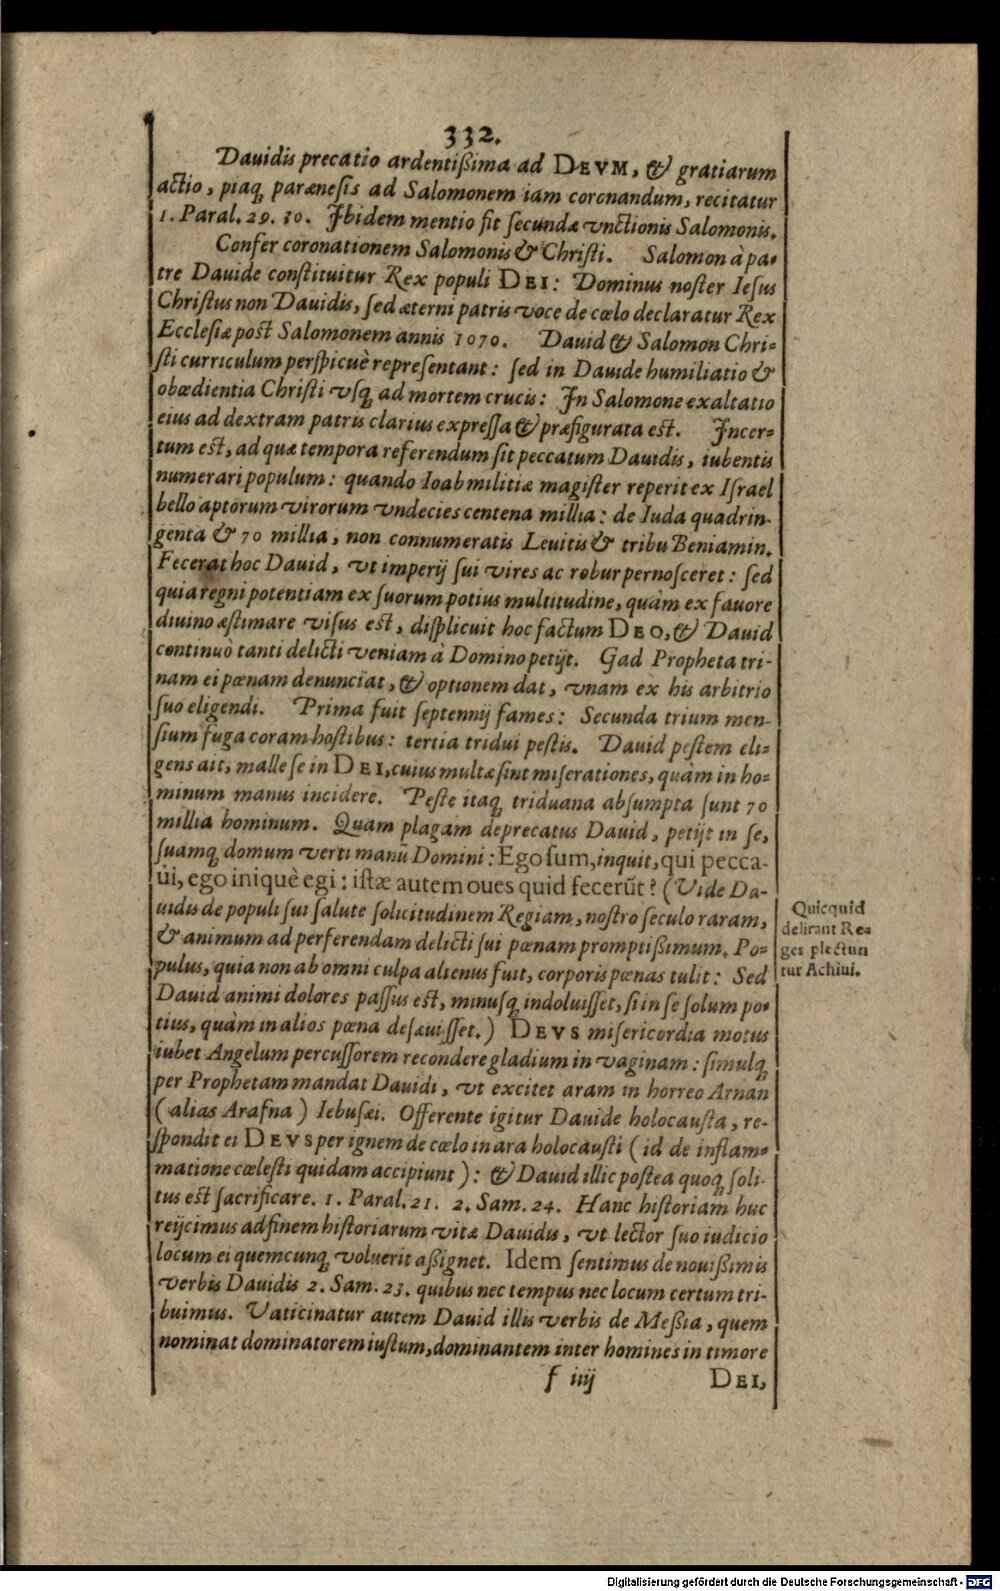 332.
Dauidis precatio ardentißima ad DEVM, & gratiarum
actio, piaq́; parænesis ad Salomonem iam corcnandum, recitatur
1. Paral. 29. 30. Ibidem mentio fit ſecundæ vnctionis Salomonis.
Confer coronationem Salomonis & Chriſti. Salomon à pa-
tre Dauide conſtituitur Rex populi DEI: Dominus noſter Ieſus
Chriſtus non Dauidis, ſed æterni patris voce de cœlo declaratur Rex
Eccleſiæ poſt Salomonem annis 1070. Dauid & Salomon Chri-
ſti curriculum perſpicuè repreſentant: ſed in Dauide humiliatio &
obœdientia Chriſti vſq́; ad mortem crucis: In Salomone exaltatio
eius ad dextram patris clarius expreſſa & præfigurata eſt. Incer-
tum eſt, ad quæ tempora referendum ſit peccatum Dauidis, iubentis
numerari populum: quando Ioab militiæ magiſter reperit ex Iſrael
bello aptorum virorum vndecies centena millia: de Iuda quadrin-
genta & 70 millia, non connumeratis Leuitis & tribu Beniamin.
Fecerat hoc Dauid, vt imperij ſui vires ac robur pernoſceret: ſed
quia regni potentiam ex ſuorum potius multitudine, quàm ex fauore
diuino æſtimare viſus eſt, diſplicuit hoc factum DEO, & Dauid
continuò tanti delicti veniam à Domino petijt. Gad Propheta tri-
nam ei pœnam denunciat, & optionem dat, vnam ex his arbitrio
ſuo eligendi. Prima fuit ſeptennij fames: Secunda trium men-
ſium fuga coram hoſtibus: tertia tridui peſtis. Dauid peſtem eli-
gens ait, malle ſe in DEI, cuius multæ ſint miſerationes, quàm in ho-
minum manus incidere. Peſte itaq́; triduana abſumpta ſunt 70
millia hominum. Quam plagam deprecatus Dauid, petijt in ſe,
ſuamq́; domum verti manũ Domini: Ego ſum, inquit, qui pecca-
ui, ego iniquè egi: iſtæ autem oues quid fecerũt? (Vide Da-
uidis de populi ſui ſalute ſolicitudinem Regiam, noſtro ſeculo raram,
& animum ad perferendam delicti ſui pœnam promptißimum. Po-
pulus, quia non ab omni culpa alienus fuit, corporis pœnas tulit: Sed
Dauid animi dolores paſſus eſt, minuſq́; indoluiſſet, ſi in ſe ſolum po-
tius, quàm in alios pœna deſæuiſſet.) DEVS miſericordia motus
iubet Angelum percuſſorem recondere gladium in vaginam: ſimulq́;
per Prophetam mandat Dauidi, vt excitet aram in horreo Arnan
(alias Arafna) Iebuſæi. Offerente igitur Dauide holocauſta, re-
ſpondit ei DEVS per ignem de cœlo in ara holocauſti (id de inflam-
matione cœleſti quidam accipiunt): & Dauid illic poſtea quoq́; ſoli-
tus eſt ſacrificare. 1. Paral. 21. 2. Sam. 24. Hanc hiſtoriam huc
reijcimus ad finem hiſtoriarum vitæ Dauidis, vt lector ſuo iudicio
locum ei quemcunq́; voluerit aßignet. Idem ſentimus de nouißimis
verbis Dauidis 2. Sam. 23. quibus nec tempus nec locum certum tri-
buimus. Vaticinatur autem Dauid illis verbis de Meßia, quem
nominat dominatorem iuſtum, dominantem inter homines in timore
f iiij DEI,
Quicquid
delirant Re-
ges plectun
tur Achiui.
Digitalisierung gefördert durch die Deutsche Forschungsgemeinschaft - DFG